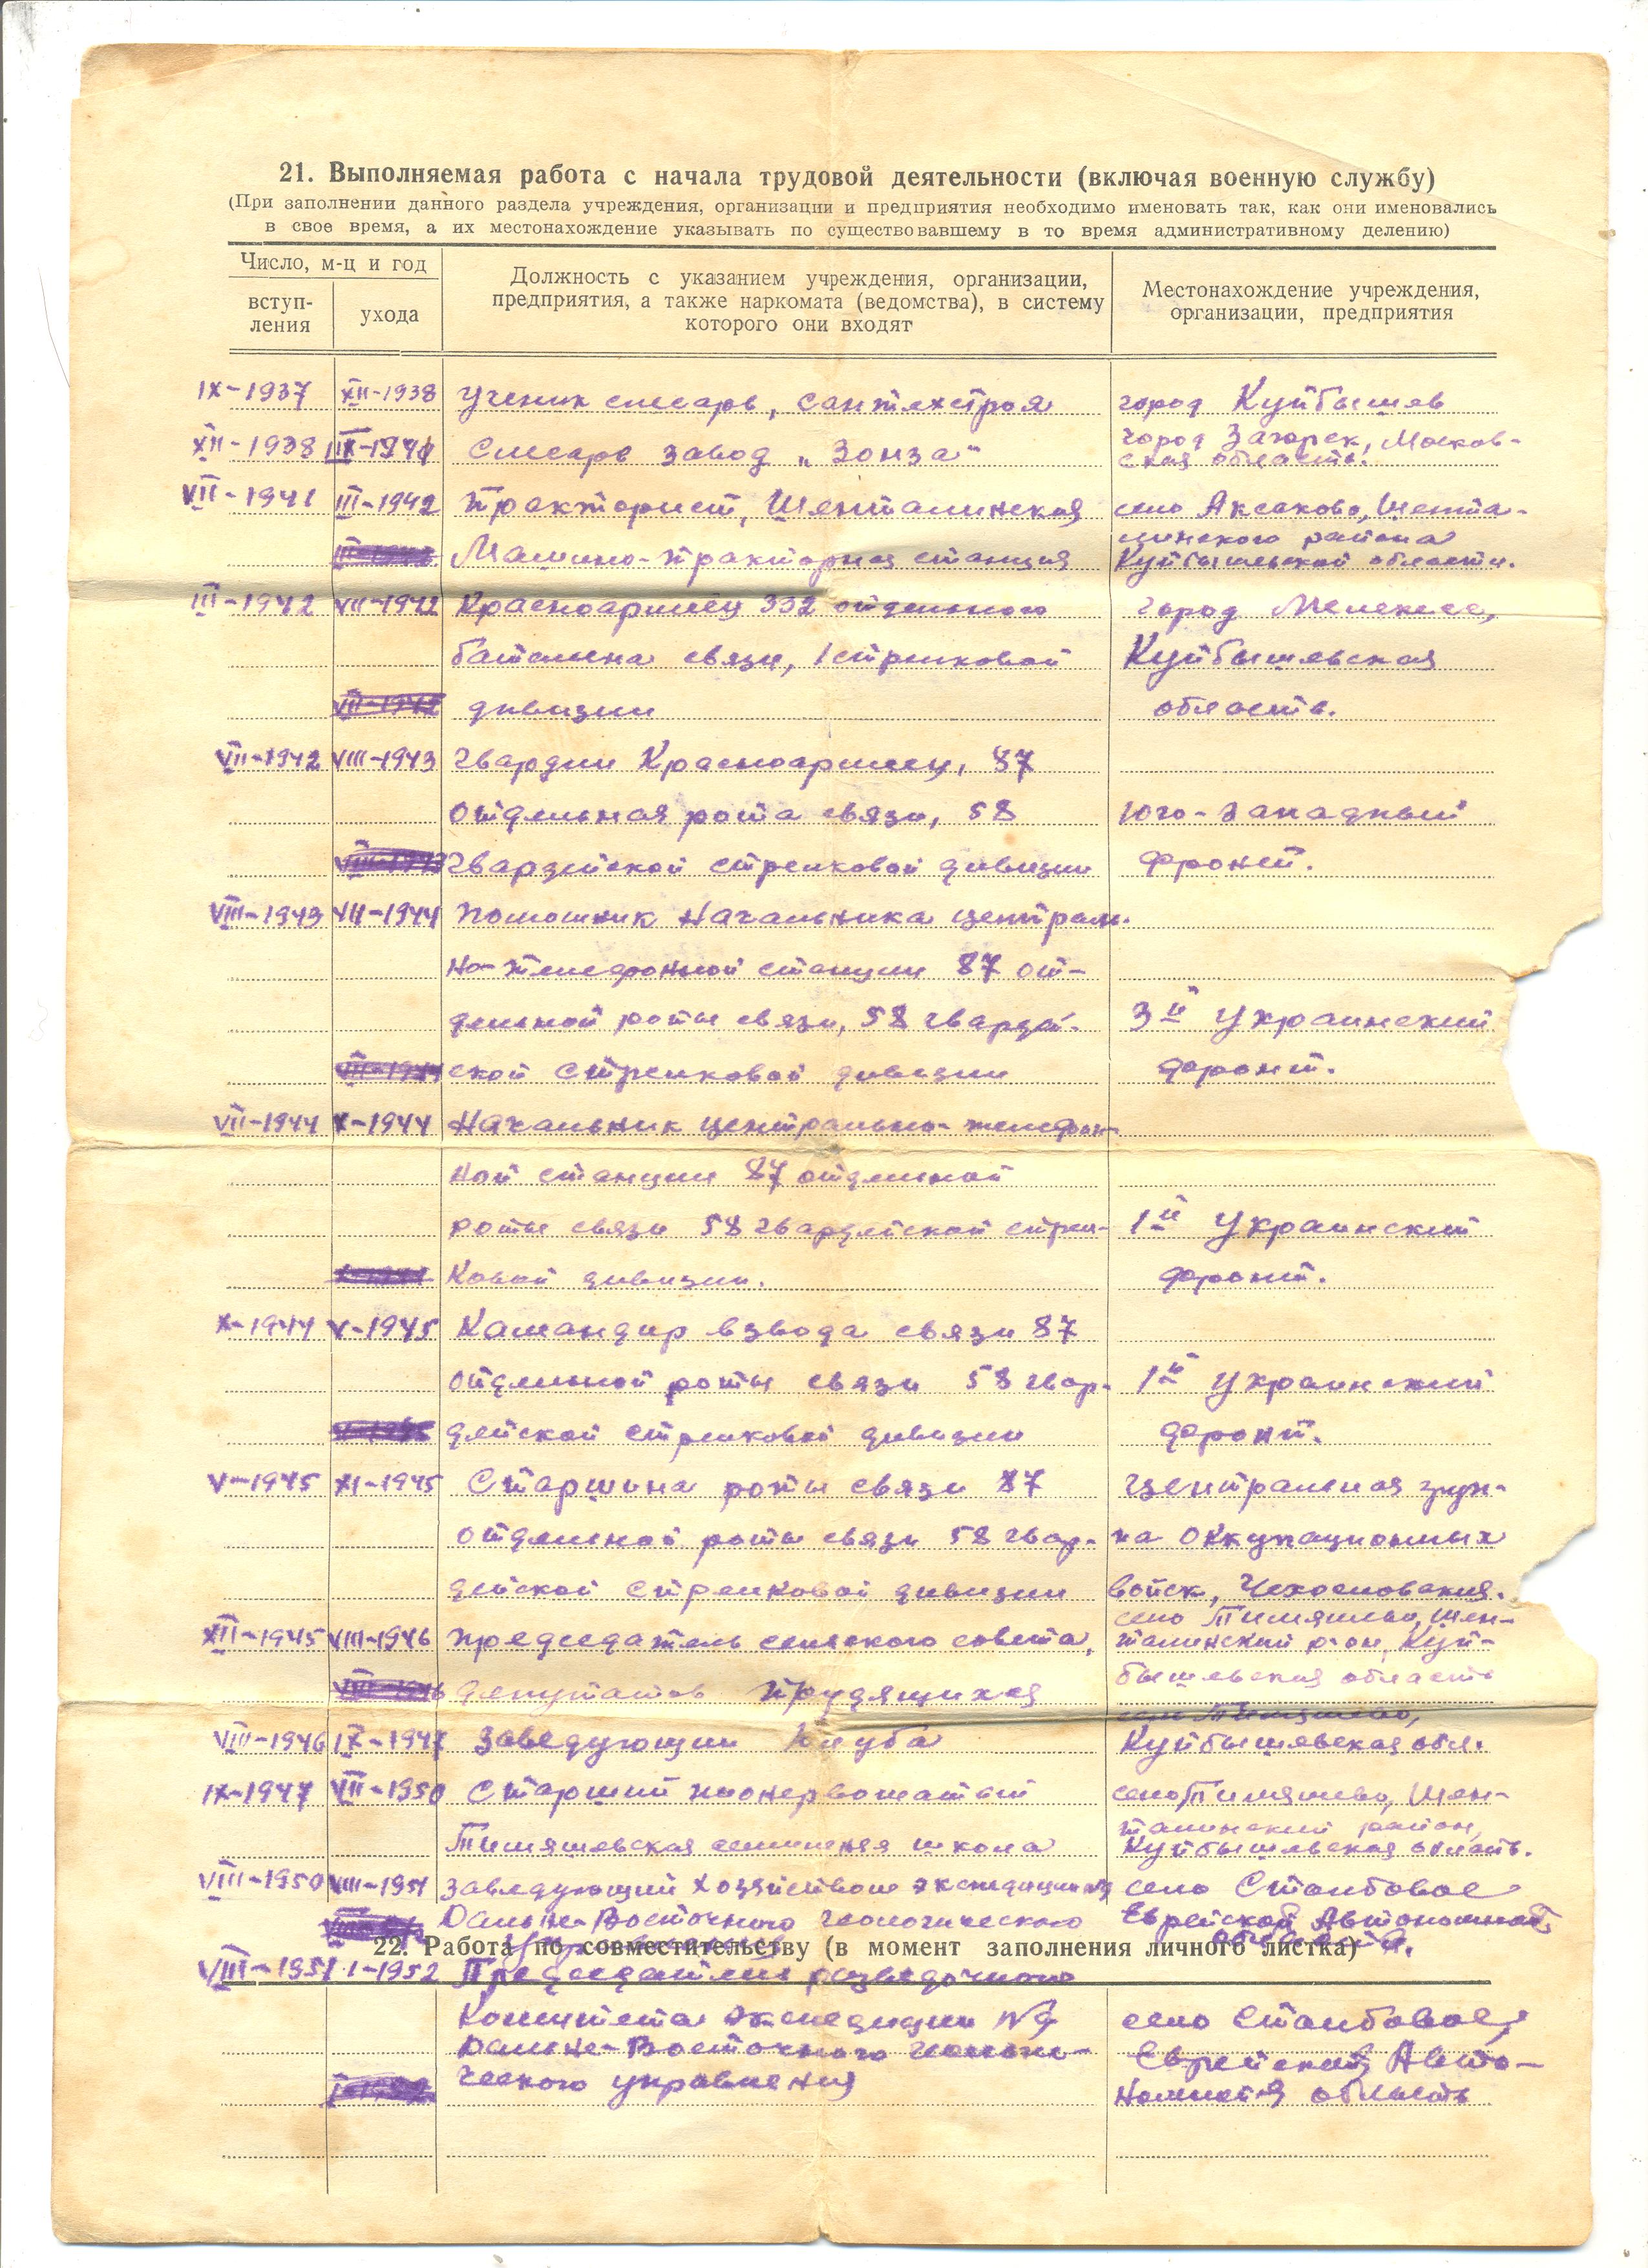 21. Выполняемая работа с начала трудовой деятельности (включая военную службу)
(При заполнении данного раздела учреждения, организации и предприятия необходимо именовать так, как они именовались
в свое время, а их местонахождение указывать по существовавшему в то время административному делению)
Число, м-ц и год
вступ-
ления
ухода
Должность с указанием учреждения, организации,
предприятия, а также наркомата (ведомства), в систему
которого они входят
Местонахождение учреждения,
организации, предприятия
IX-1937 XII-1938 Ученик слесарь, сантехстроя город Куйбышев
город Загорск, Москов-
XII-1938 Слесарь завод „Зомза" ская область.
VII-1941 III-1942 Тракторист, Шенталинская село Аксаково, Шента-
линского района
Машино-тракторная станция Куйбышевской области.
III-1942 VII-1942 Красноармеец 332 отдельного город Мелекесс,
батальона связи, 1 стрелковой Куйбышевская
VII-1942 дивизии область.
VII-1942 VIII-1943 Гвардии Красноармеец, 87
отдельная рота связи, 58 Юго-Западный
VIII-1943 Гвардейской стрелковой дивизии фронт.
VIII-1943 VII-1944 Помошник Начальника централь-
но-телефонной станции 87 от-
дельной роты связи, 58 гвардей- 3й Украинский
VII-1944 ской стрелковой дивизии фронт.
VII-1944 X-1944 Начальник центрально-телефон-
ной станции 87 отдельной
роты связи 58 гвардейской стрел- 1й Украинский
ковой дивизии. фронт.
X-1944 V-1945 Командир взвода связи 87
отдельной роты связи 58 гвар- 1й Украинский
дейской стрелковой дивизии фронт.
V-1945 XI-1945 Старшина роты связи 87 Центральная груп-
отдельной роты связи 58 гвар- па оккупационных
дейской стрелковой дивизии войск, Чехословакия.
село Тимяшево, Шен-
XII-1945 VIII-1946 Председатель сельского совета, талинский р-он, Куй-
бышевская область
VIII-1946 депутатов трудящихся
село Тимяшево,
VIII-1946 IX-1947 Заведующий клуба Куйбышевская обл.
IX-1947 VII-1950 Старший пионервожатый село Тимяшево, Шен-
талинский район,
Тимяшевская семилетняя школа Куйбышевская область.
VIII-1950 VIII-1951 Заведующий хозяйством экспедиции село Столбовое
Дальне-Восточного геологического Еврейской Автономной
управления область.
22. Работа по совместительству (в момент заполнения личного листка)
VIII-1951 I-1952 Председателя разведочного
Комитета экспедиции село Столбовое,
Дальне-Восточного геологи- Еврейская Авто-
ческого управления номная область